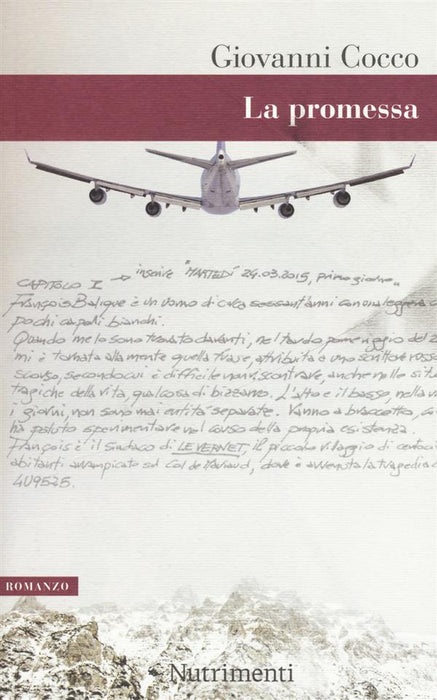 Giovanni Cocco
La promessa
CAPITOLO I → inserire "MARTEDÌ 24.03.2015, primo giorno"
François Balique è un uomo di circa sessant'anni con una leggera
pochi capelli bianchi.
Quando me lo sono trovato davanti, nel tardo pomeriggio del 2
mi è tornata alla mente quella frase, attribuita a uno scrittore russo
scorso, secondo cui è difficile non riscontrare, anche nelle situ
tragiche della vita, qualcosa di bizzarro. L'alto e il basso, nella v
i giorni, non sono mai entità separate. Vanno a braccetto, co
ha potuto sperimentare nel corso della propria esistenza.
François è il sindaco di LE VERNET, il piccolo villaggio di centoci
abitanti arrampicato sul Col de Mariaud, dove è avvenuta la tragedia d
4U9525.
ROMANZO
Nutrimenti